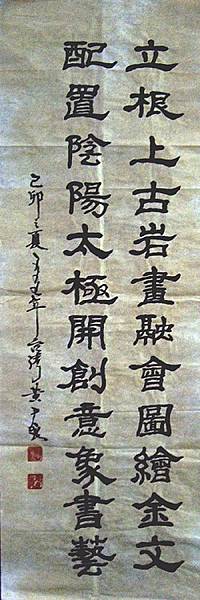 立根上古岩畫融會圖繪金文
配置陰陽太極開創意象書藝
己卯之夏
台灣黃